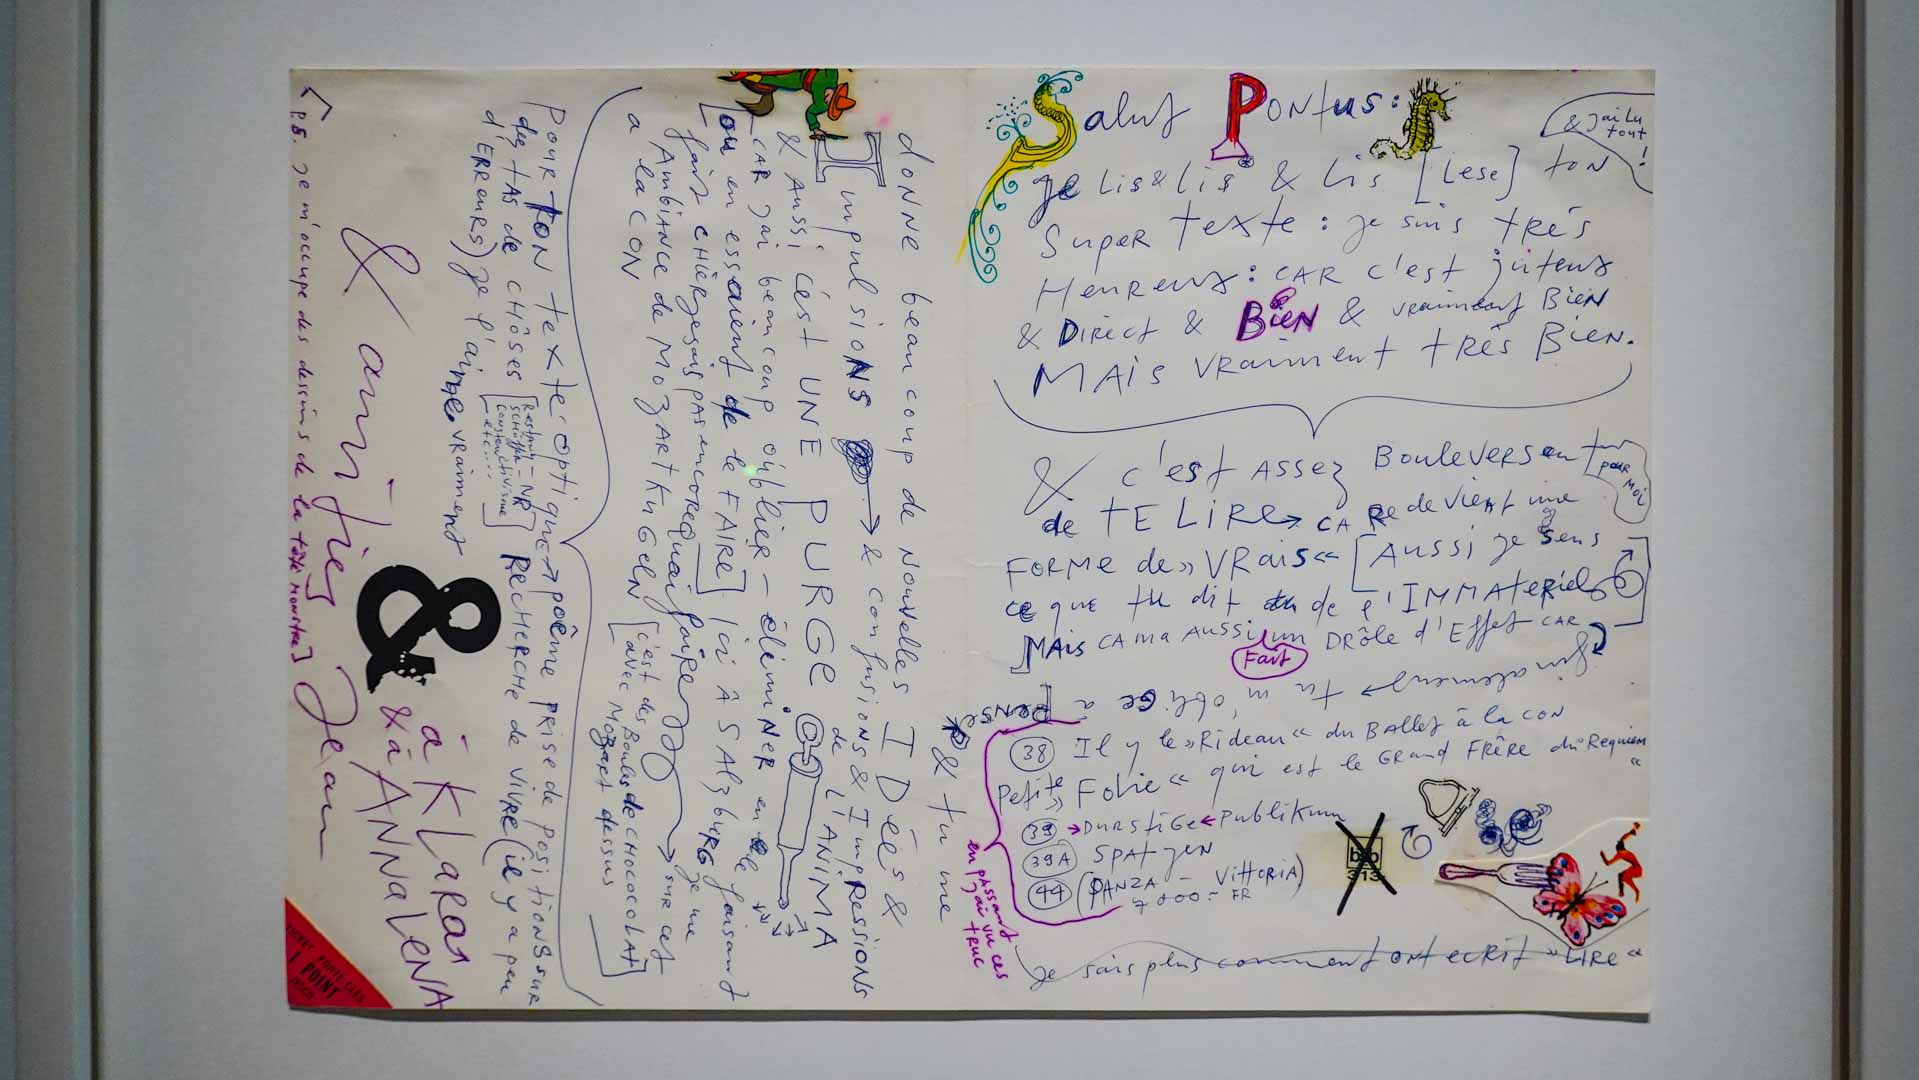 Salut PONTUS:
& j'ai Lu tout !
Je Lis & Lis & Lis [Lese] ton
Super Texte : je suis très
Heureux : CAR c'est juteux
& Direct & BIEN & vraiment BIEN
MAIS vraiment très Bien.
& c'est ASSEZ Bouleversent pour moi
de TE LIRE → CAR Redevient une
FORME de »VRAIS« [Aussi je sens
ce que tu dit de l'IMMAteriel
MAIS CA m'a AUSSI Fait un DRÔLE d'Effet CAR
finalement → tu m'oblige à PENSER
en passant j'ai vu ces truc
38 Il y le »Rideau« du BALLET à la CON
Petite »Folie« qui est le GRAND FRÊRE du "Requiem"
39 → DURSTIGE ← Publikum
39A SPATZEN
44 (PANZA - VITTORIA)
7000.- FR
bio
313
Je sais plus comment ont ecrit »LIRE«
& tu me
donne beaucoup de nouvelles IDées &
Impulsions → & confusions & Impressions
& AUSSI c'est UNE PURGE de L'ANIMA
CAR j'ai beaucoup oublier - éliminer en le faisant
[ou en essaient de le FAIRE] Ici À SAlzBURG je me
fait CHIER je sais pas encore quoi faire → sur cet
AMBIANCE de MOZARTKUGELN [c'est des Boules de CHOCOLAT
avec MOZART dessus]
a la CON
Pour TON texte: optique → poême prise de positions sur
des TAS de CHôSES [Restany - NR
Constructivisme
etc....] RECHERCHE de VIVRE (il y a peu
d'ERREURS) je l'aime vraiment
& amitiés Jean
& à KLARA
& à ANNA LENA
[P.S. je m'occupe des dessins de la tête MONSTRE]
1 POINT